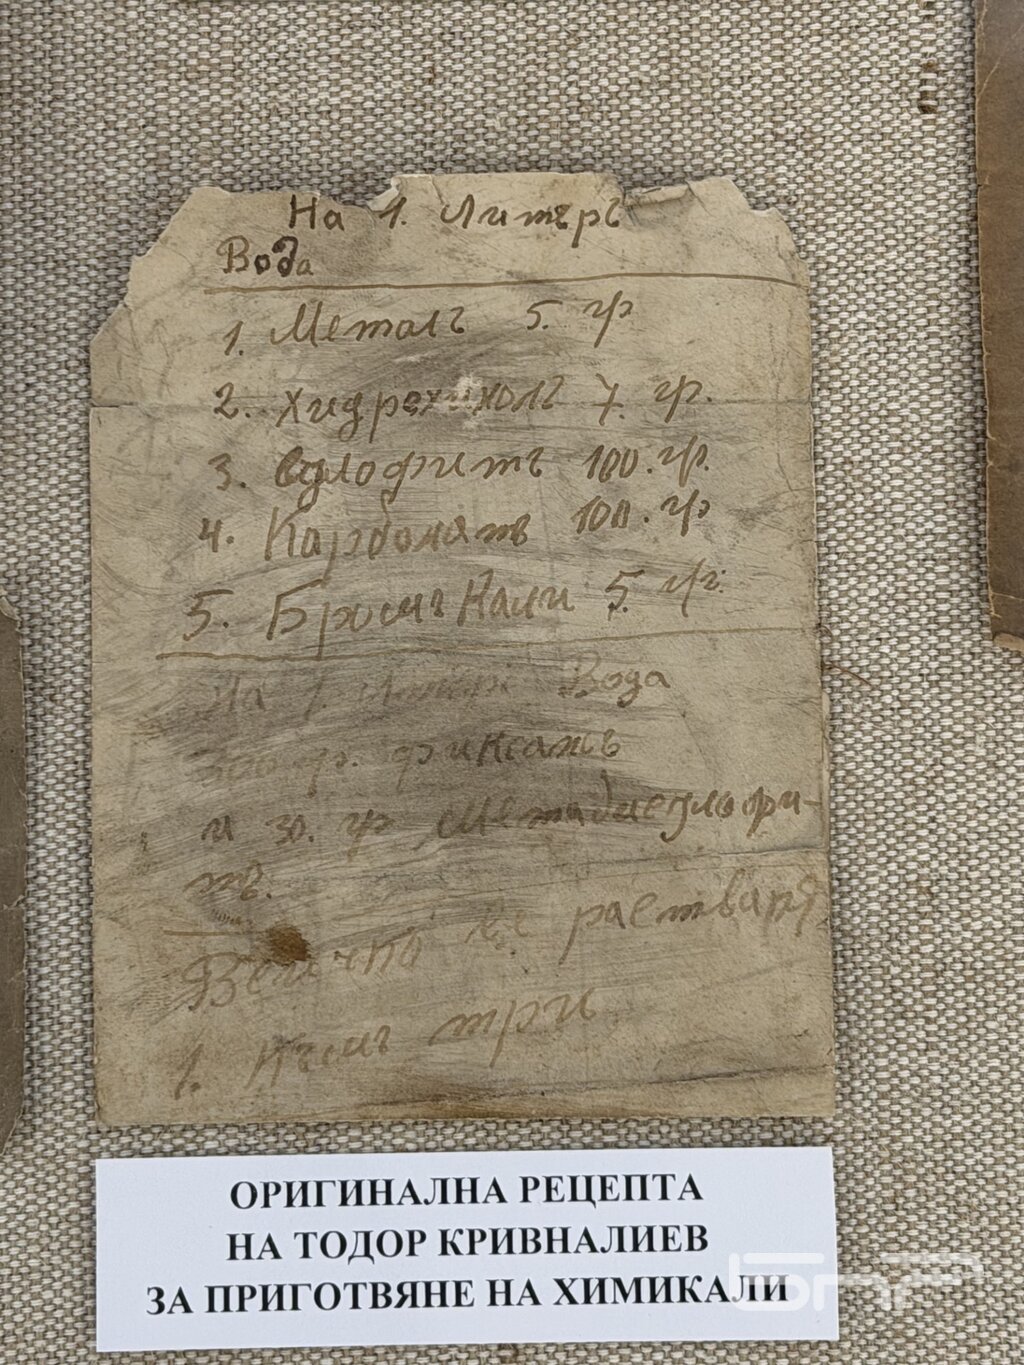 На 1. Литъръ
Вода
1. Металъ 5. гр
2. Хидрехихолъ 7. гр.
3. Сулофитъ 100. гр.
4. Карбонатъ 100. гр
5. Бромъ Кали 5. гр.
На 1. Литъръ Вода
300 гр. фиксажъ
и 30. гр Метабисулофи-
тъ.
Всичко се растваря
1. Към три
ОРИГИНАЛНА РЕЦЕПТА
НА ТОДОР КРИВНАЛИЕВ
ЗА ПРИГОТВЯНЕ НА ХИМИКАЛИ
бнр